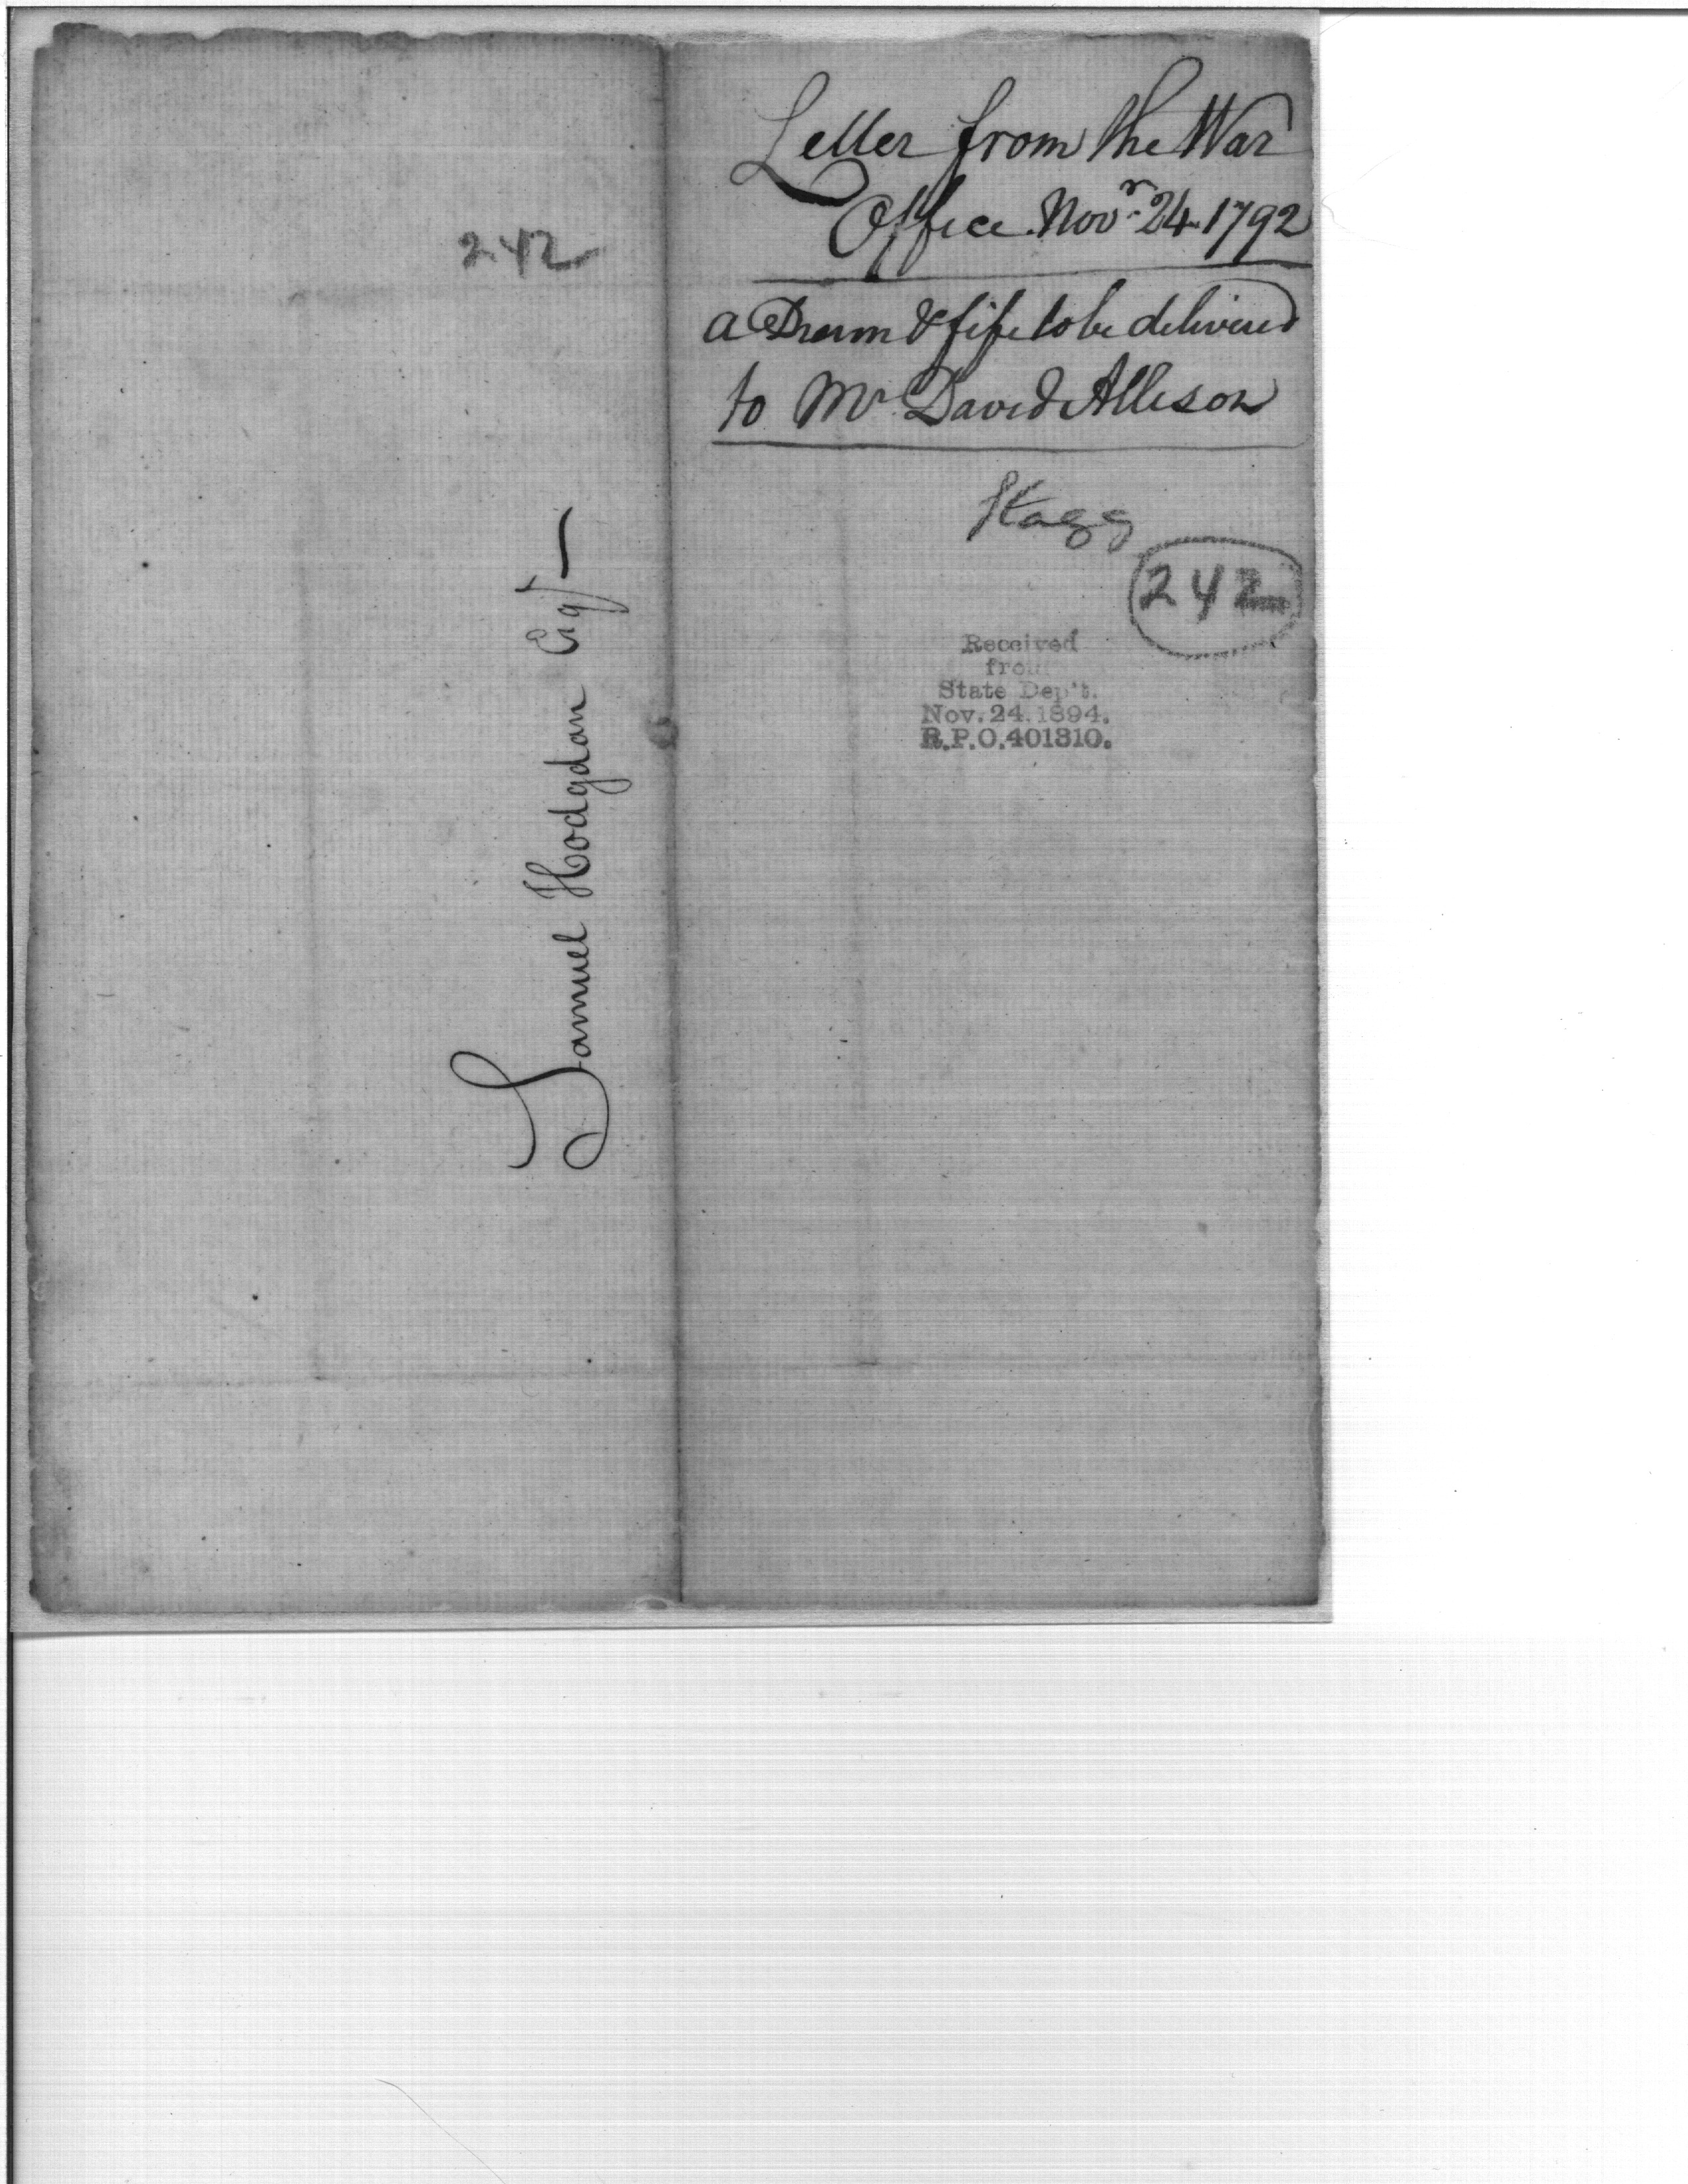 242
Samuel Hodgdon Esqr
Letter from the War
Office Novr. 24. 1792
a Drum & fife to be delivered
to Mr David Allison
Stagg
242
Received
from
State Dep't.
Nov. 24. 1894.
R.P.O. 401310.